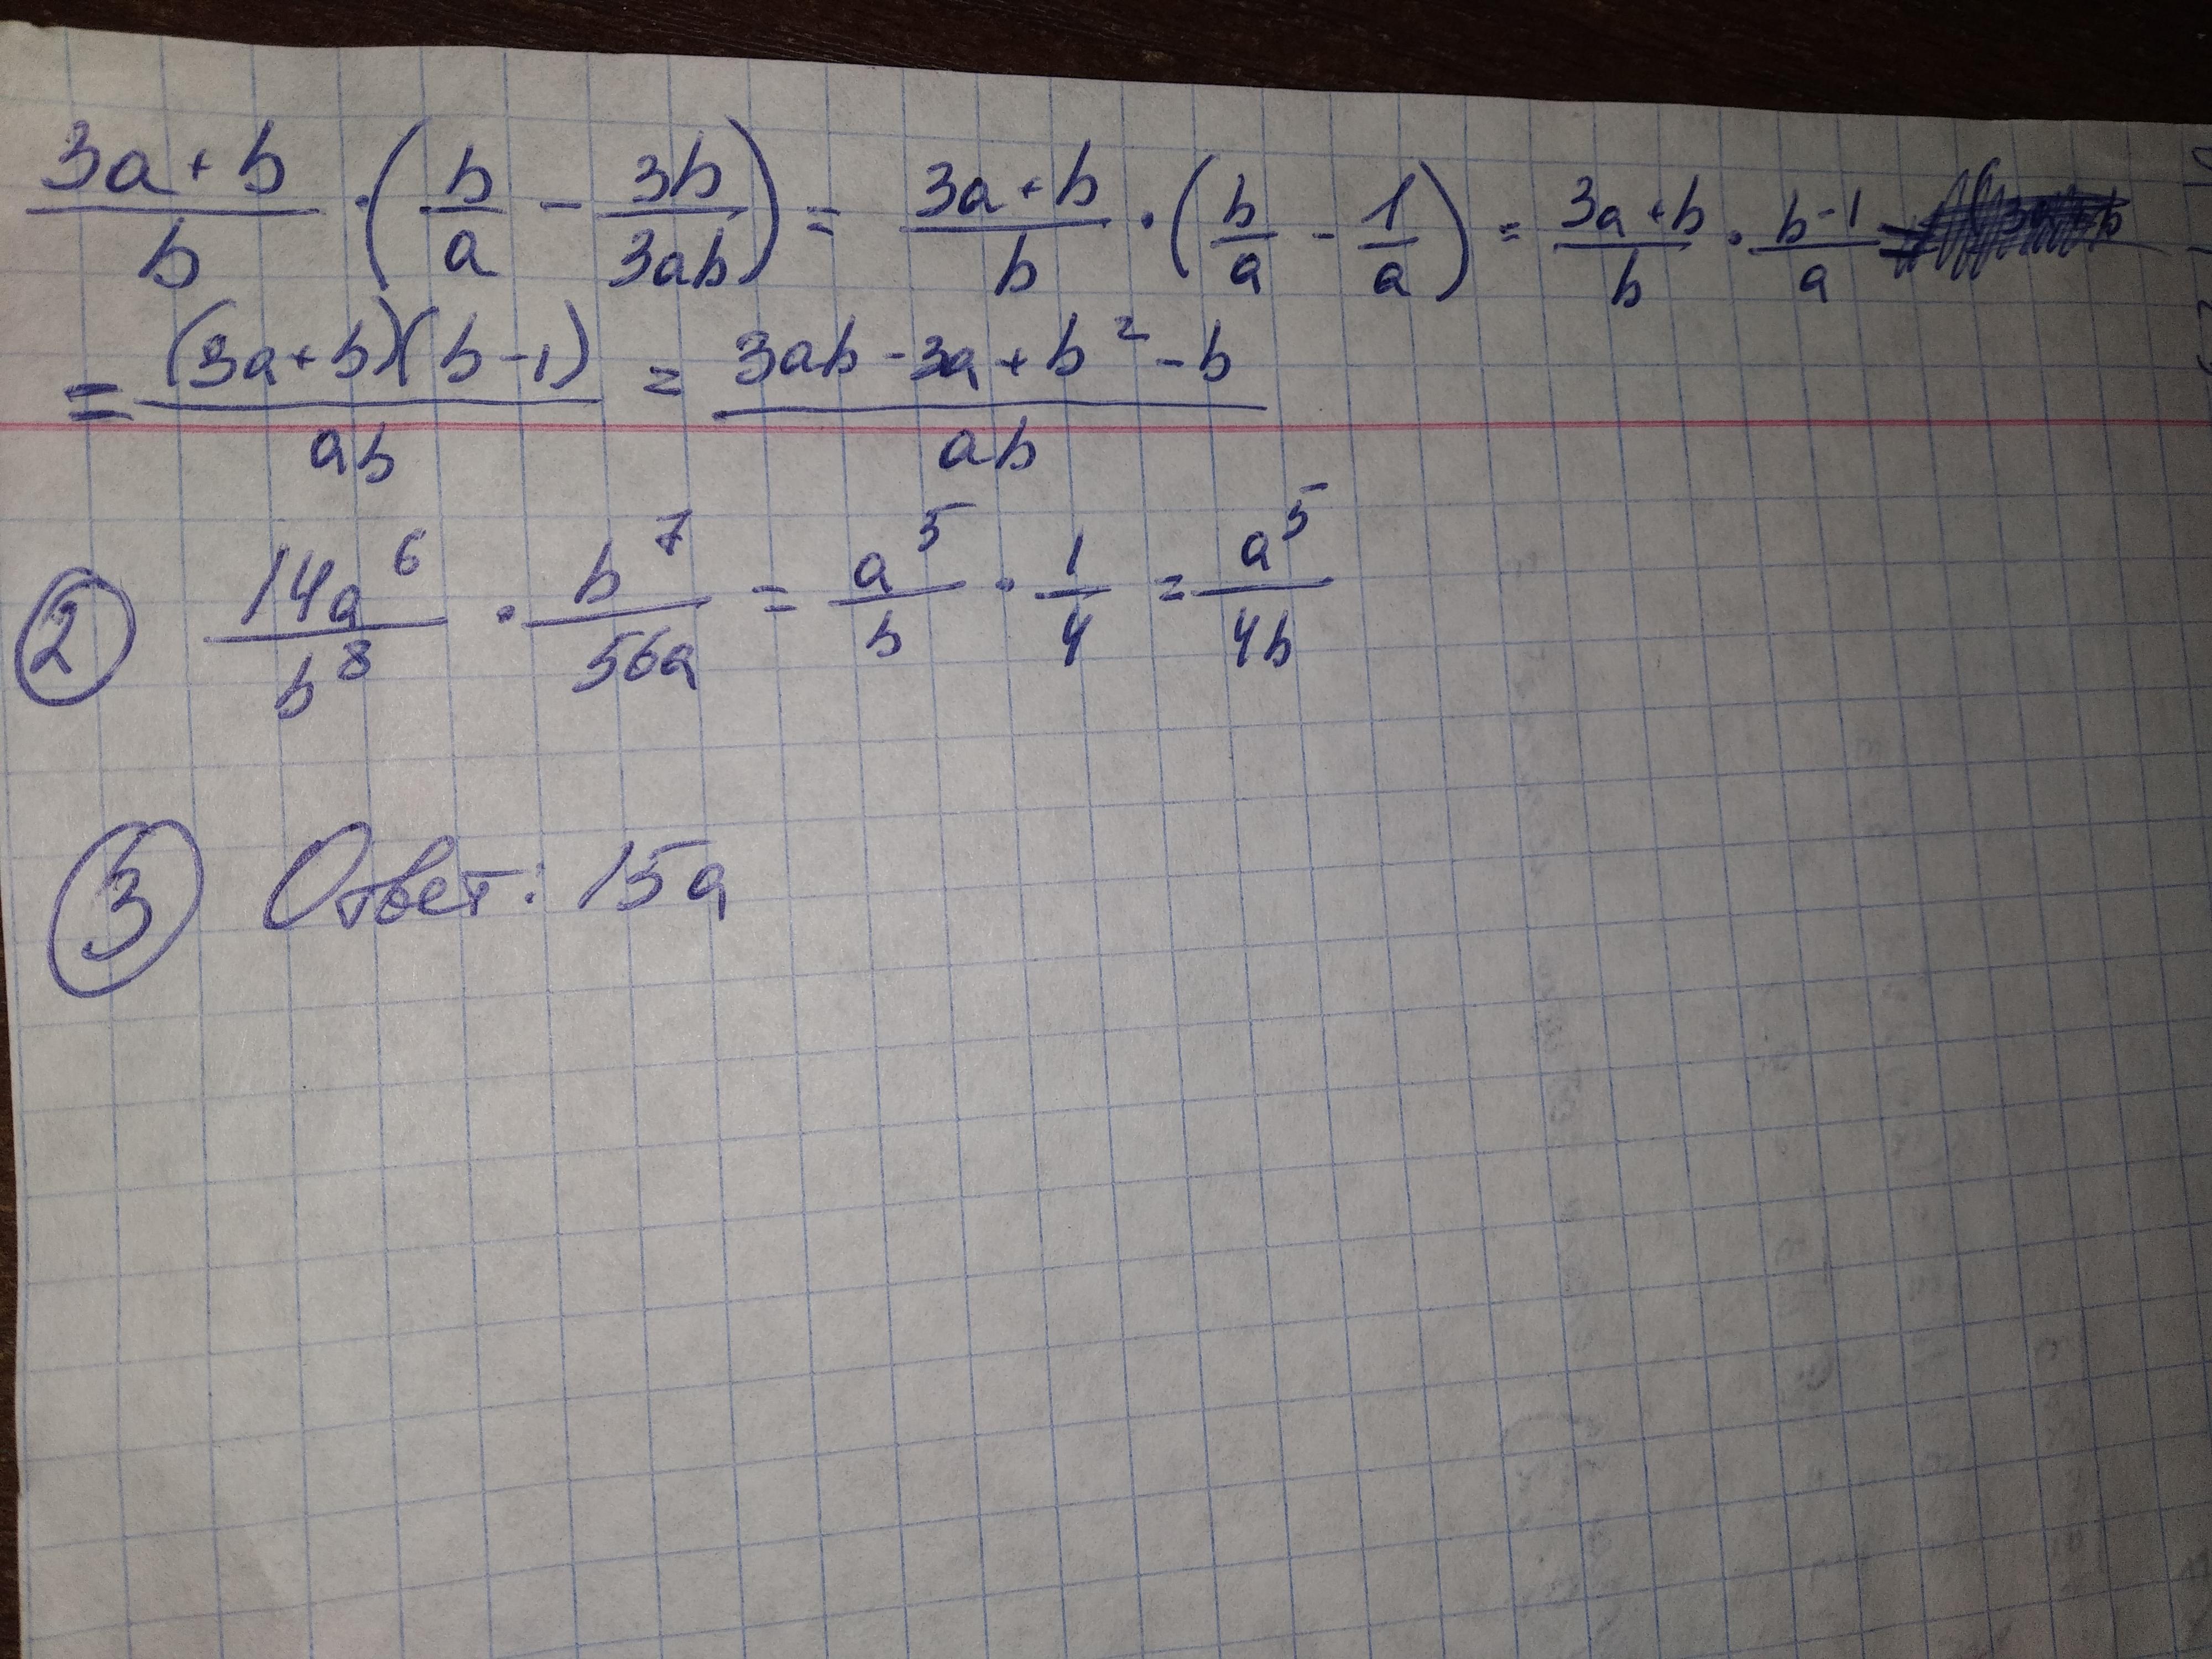 (3a+b)/b · (b/a - 3b/3ab) = (3a+b)/b · (b/a - 1/a) = (3a+b)/b · (b-1)/a
= (3a+b)(b-1)/ab = (3ab-3a+b²-b)/ab
② 14a⁶/b⁸ · b⁷/56a = a⁵/b · 1/4 = a⁵/4b
③ Ответ: 15a